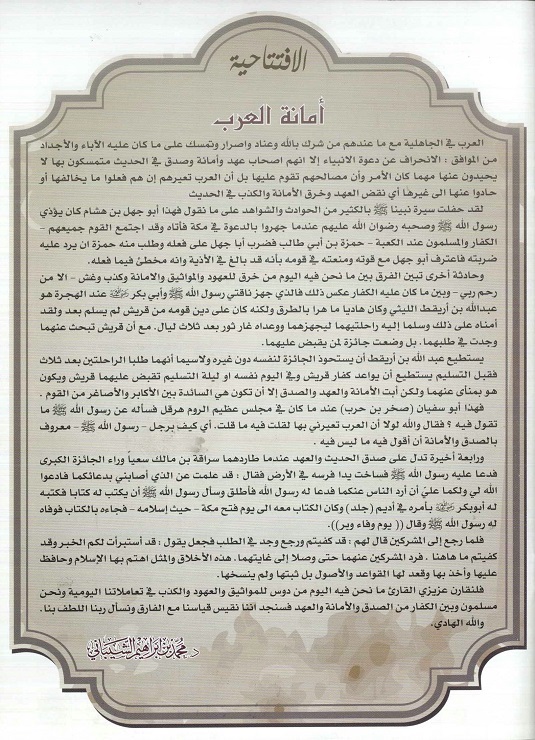 الافتتاحية
أمانة العرب
العرب في الجاهلية مع ما عندهم من شرك بالله وعناد واصرار وتمسك على ما كان عليه الآباء والأجداد
من الموافق : الانحراف عن دعوة الانبياء إلا انهم اصحاب عهد وأمانة وصدق في الحديث متمسكون بها لا
يحيدون عنها مهما كان الأمر وأن مصالحهم تقوم عليها بل أن العرب تعيرهم إن هم فعلوا ما يخالفها أو
حادوا عنها الى غيرها أي نقض العهد وخرق الأمانة والكذب في الحديث
لقد حفلت سيرة نبينا ﷺ بالكثير من الحوادث والشواهد على ما نقول فهذا أبو جهل بن هشام كان يؤذي
رسول الله ﷺ وصحبه رضوان الله عليهم عندما جهروا بالدعوة في مكة فأتاه وقد اجتمع القوم جميعهم -
الكفار والمسلمون عند الكعبة - حمزة بن أبي طالب فضرب أبا جهل على فعله وطلب منه حمزة ان يرد عليه
ضربته فاعترف أبو جهل مع قوته ومنعته في قومه بأنه قد بالغ في الأذية وانه مخطئ فيما فعله.
وحادثة أخرى تبين الفرق بين ما نحن فيه اليوم من خرق للعهود والمواثيق والامانة وكذب وغش - الا من
رحم ربي - وبين ما كان عليه الكفار عكس ذلك فالذي جهز ناقتي رسول الله ﷺ وأبي بكر رضي الله عنه عند الهجرة هو
عبدالله بن أريقط الليثي وكان هاديا ما هرا بالطرق ولكنه كان على دين قومه من قريش لم يسلم بعد ولقد
أمناه على ذلك وسلما إليه راحلتيهما ليجهزهما ووعداه غار ثور بعد ثلاث ليال. مع أن قريش تبحث عنهما
وجدت في طلبهما، بل وضعت جائزة لمن يقبض عليهما.
يستطيع عبد الله بن أريقط أن يستحوذ الجائزة لنفسه دون غيره ولاسيما أنهما طلبا الراحلتين بعد ثلاث
فقبل التسليم يستطيع أن يواعد كفار قريش وفي اليوم نفسه او ليلة التسليم تقبض عليهما قريش ويكون
هو بمنأى عنهما ولكن أبت الأمانة والعهد والصدق إلا أن تكون هي السائدة بين الأكابر والأصاغر من القوم .
فهذا أبو سفيان (صخر بن حرب) عند ما كان في مجلس عظيم الروم هرقل فسأله عن رسول الله ﷺ ما
تقول فيه ؟ فقال والله لولا أن العرب تعيرني بها لقلت فيه ما قلت. أي كيف يرجل - رسول الله ﷺ - معروف
بالصدق والأمانة أن أقول فيه ما ليس فيه .
ورابعة أخيرة تدل على صدق الحديث والعهد عندما طاردهما سراقة بن مالك سعياً وراء الجائزة الكبرى
فدعا عليه رسول الله ﷺ فساخت يدا فرسه في الأرض فقال : قد علمت عن الذي أصابني بدعائكما فادعوا
الله لي ولكما عليّ أن أرد الناس عنكما فدعا له رسول الله ﷺ فأطلق وسأل رسول الله ﷺ أن يكتب له كتابا فكتبه
له أبوبكر رضي الله عنه بأمره في أديم (جلد) وكان الكتاب معه الى يوم فتح مكة - حيث إسلامه - فجاءه بالكتاب فوفاه
له رسول الله ﷺ وقال (( يوم وفاء وبر)).
فلما رجع إلى المشركين قال لهم : قد كفيتم ورجع وجد في الطلب فجعل يقول : قد استبرأت لكم الخبر وقد
كفيتم ما هاهنا . فرد المشركين عنهما حتى وصلا إلى غايتهما. هذه الأخلاق والمثل اهتم بها الإسلام وحافظ
عليها وأخذ بها وقعد لها القواعد والأصول بل ثبتها ولم ينسخها.
فلنقارن عزيزي القارئ ما نحن فيه اليوم من دوس للمواثيق والعهود والكذب في تعاملاتنا اليومية ونحن
مسلمون وبين الكفار من الصدق والأمانة والعهد فسنجد أننا نقيس قياسنا مع الفارق ونسأل ربنا اللطف بنا .
والله الهادي.
د. محمد بن إبراهيم الشيباني